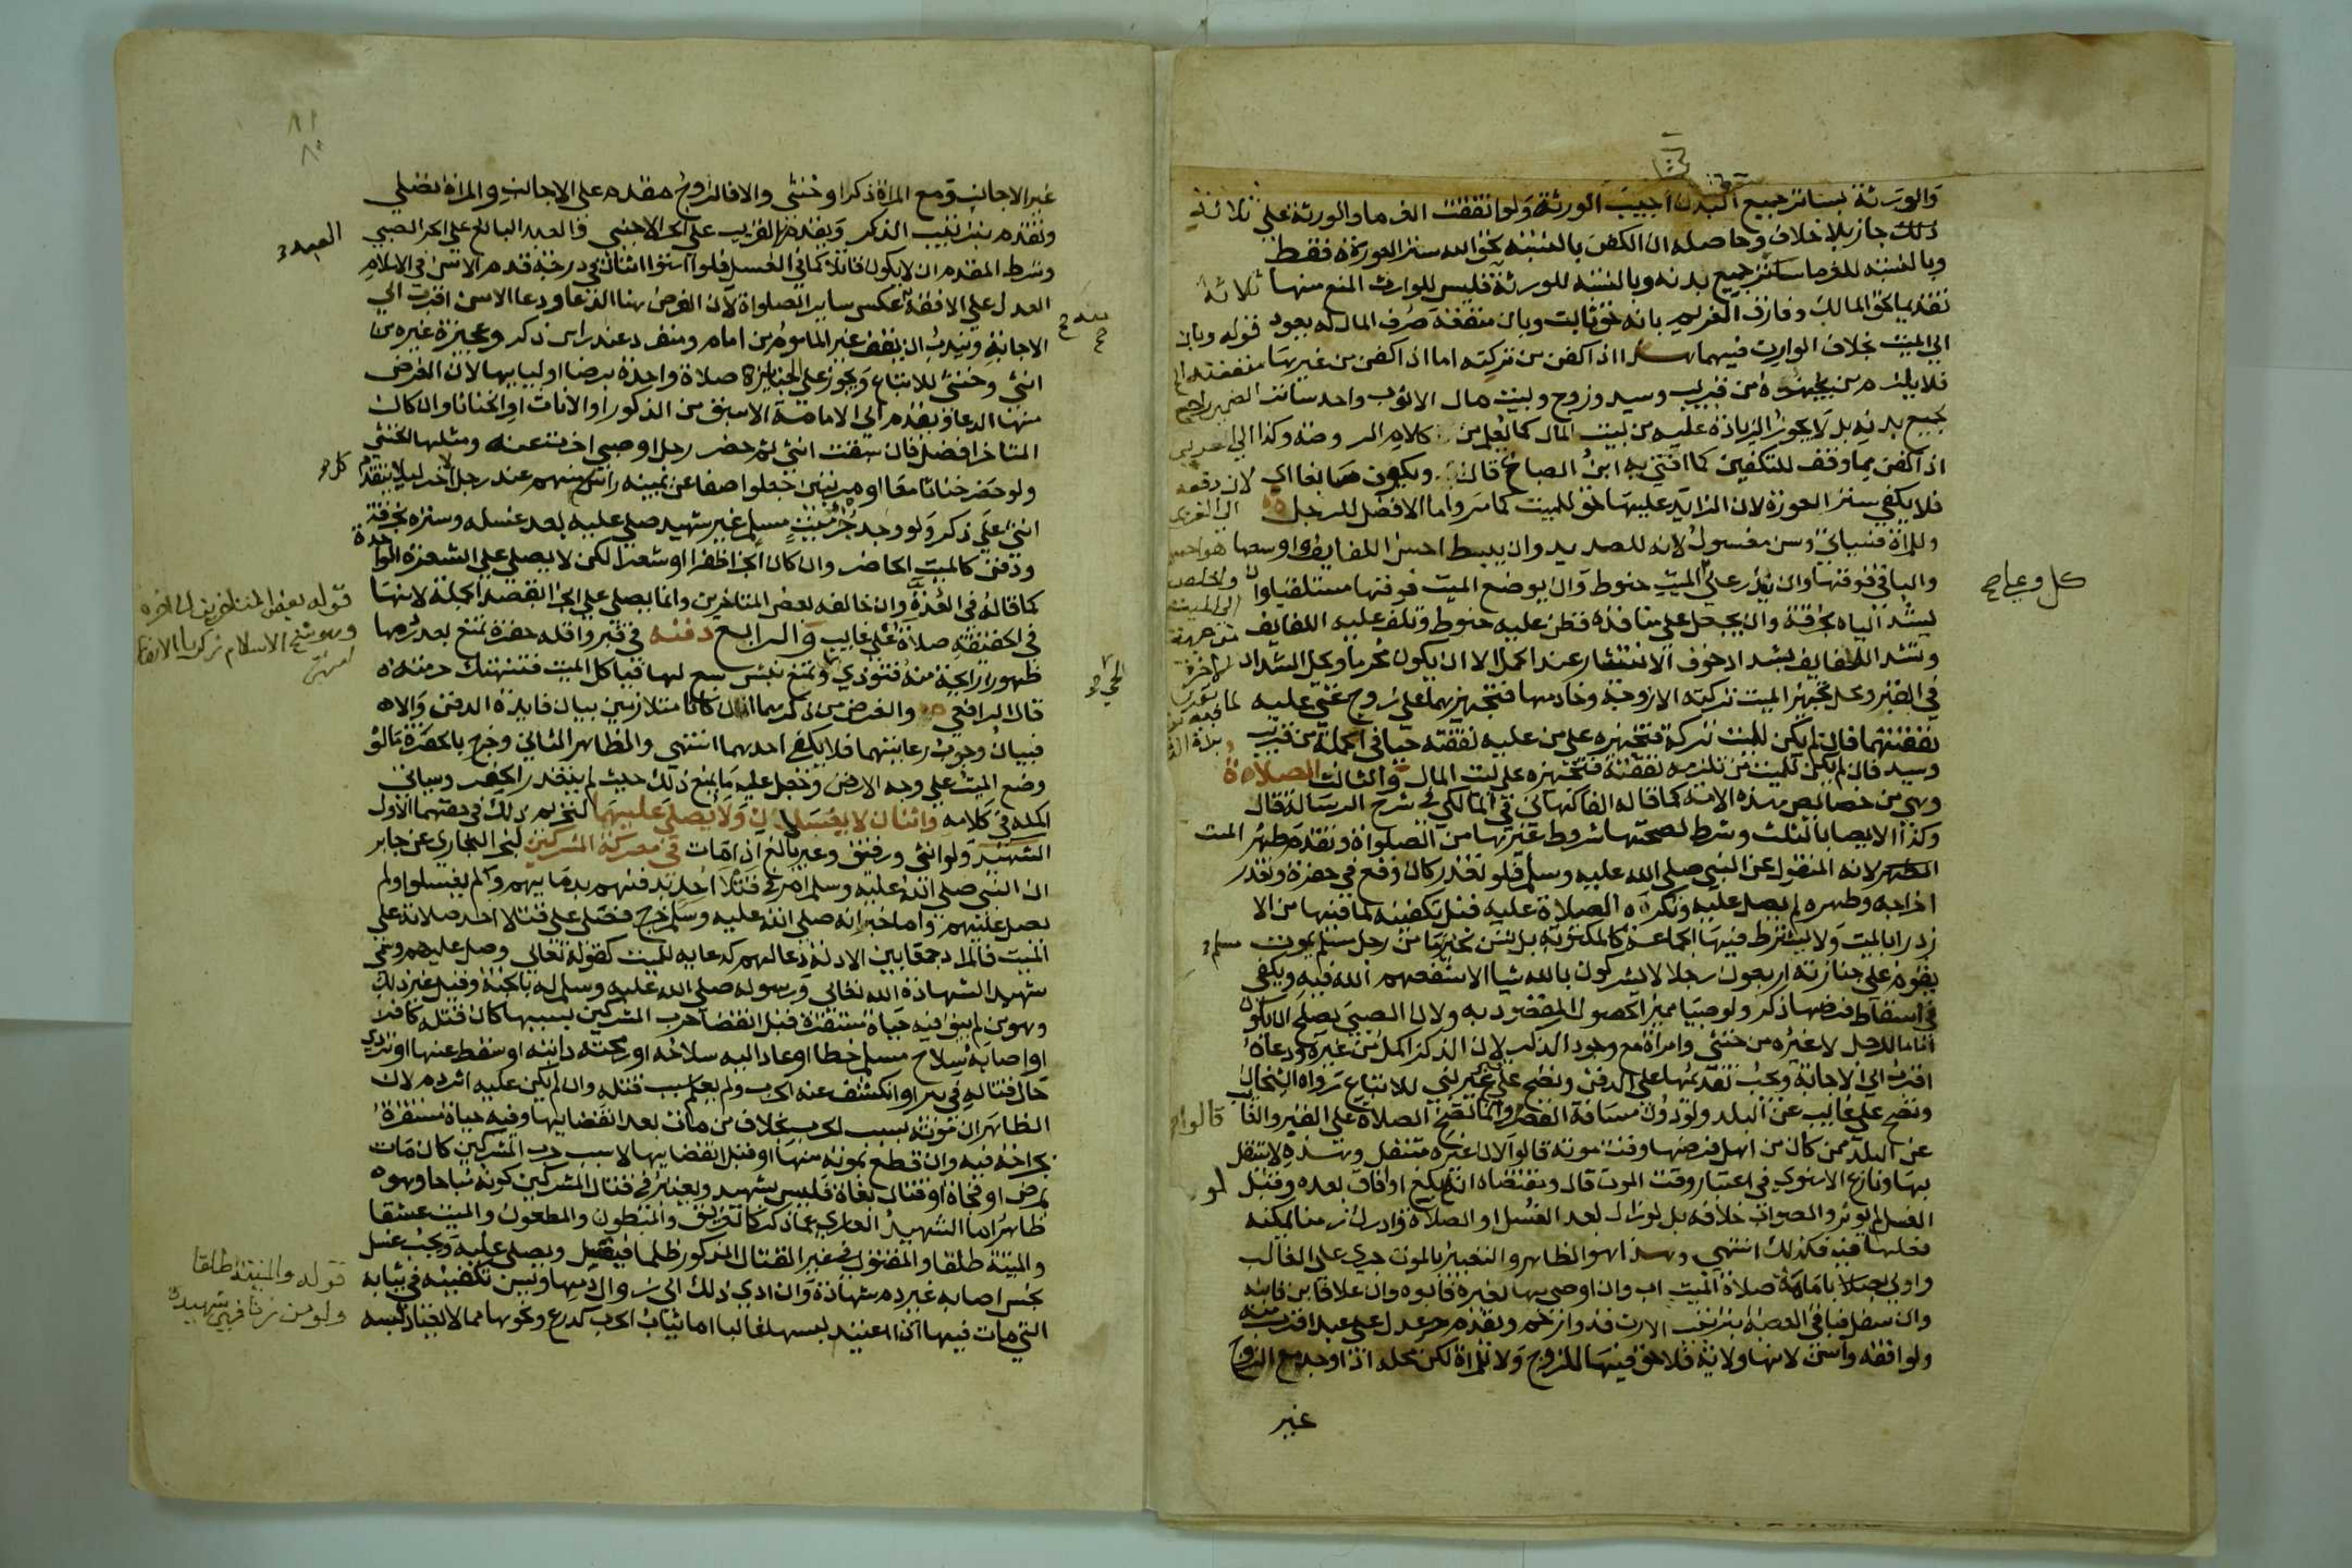 والورثة بساتر جميع البدن اجيبت الورثة ولو اتفقت الغرما والورثة علي ثلاثة
ذلك جاز بلا خلاف وحاصله ان الكفن بالنسبة لحق الله ستر العورة فقط
وبالنسبة للغرما ساتر جميع بدنه وبالنسبة للورثة فليس للوارث المنع منها ثلاثة
تقديما لحق المالك وفارق الغريم بانه حق ثابت وبان منفعة صرف المال له يعود
الي الميت بخلاف الوارث فيهما هذا اذا كفن من تركته اما اذا كفن من غيرها
فلا يلزم من يجهزه من قريب وسيد وزوج وبيت مال الا ثوب واحد ساتر
جميع بدنه بل لا يجوز الزيادة عليه من بيت المال كما يعلم من كلام الروضة وكذا
اذا كفن مما وقف للتكفين كما افتي به ابن الصلاح قال ويكون سابغا اي
فلا يكفي ستر العورة لان الزايد عليها حق للميت كما مر واما الافضل للرجل
وللمراة فسياتي وسن مغسول لانه للصديد وان يبسط احسن اللفايف واوسعها
والباقي فوقها وان يذر علي الميت حنوط وان يوضع الميت فوقها مستلقيا وان
يشد الياه بخرقة وان يجعل علي منافذه قطن عليه حنوط وتلف عليه اللفايف
وتشد اللفايف بشداد خوف الانتشار عند الحمل الا ان يكون محرما ويحل الشداد
في القبر ومحل تجهيز الميت تركته الا زوجة وخادمها فتجهيزهما علي زوج غني عليه
نفقتهما فان لم يكن للميت تركة فتجهيزه علي من عليه نفقته حيا في الجملة من قريب
وسيد فان لم يكن للميت من تلزمه نفقته فتجهيزه علي بيت المال والثالث الصلاة
وهي من خصايص هذه الامة كما قاله الفاكهاني المالكي في شرح الرسالة قال
وكذا الايصا بالثلث وشرط لصحتها شروط غيرها من الصلواة وتقدم طهر الميت
لانه المنقول عن النبي صلي الله عليه وسلم فلو تعذر كان وقع في حفرة وتعذر
اخراجه وطهره لم يصل عليه وتكره الصلاة عليه قبل تكفينه لما فيها من الا
زدرا بالميت ولا يشترط فيها الجماعة كالمكتوبة بل تسن لخبر ما من رجل مسلم يموت
يقوم علي جنازته اربعون رجلا لا يشركون بالله شيا الا شفعهم الله فيه ويكفي
في اسقاط فرضها ذكر ولو صبيا مميزا لحصول المقصود به ولان الصبي يصلح ان يكون
اماما للرجل لا غيره من خنثي وامراة مع وجود الذكر لان الذكر اكمل من غيره ودعاه
اقرب الي الاجابة ويجب تقديمها علي الدفن وتصح علي قبر غير نبي للاتباع رواه الشيخان
وتصح علي غايب عن البلد ولو دون مسافة القصر وانما تصح الصلاة علي القبر والغا
عن البلد ممن كان من اهل فرضها وقت موته قالوا لان غيره متنفل وهذه لا يتنفل
بها ونازع الاسنوي في اعتبار وقت الموت قال ومقتضاه انه لو بلغ او افاق بعده وقبل
الغسل لم يوثر والصواب خلافه بل لو زال بعد الغسل او الصلاة وادرك زمنا يمكنه
فعلها فيه فكذلك انتهي وهذا هو الظاهر والتعبير بالموت جري علي الغالب
واولي بصلاة الميت اب وان اوصي بها لغيره فابوه وان علا فابن فابنه
وان سفل فباقي العصبة بترتيب الارث فذو رحم ويقدم حر عدل علي عبد اقرب منه
ولو افقه واسن لانها ولاية فلا حق فيها للزوج ولا للمراة لكن محله اذا وجد مع الزوج
غير
كل وعيا صح
غير الاجانب ومع المراة ذكر او خنثي والا فالزوج مقدم علي الاجانب والمراة تصلي
وتقدم بترتيب الذكر ويقدم القريب علي الحر الاجنبي والعبد البالغ علي الحر الصبي
وشرط المقدم ان لا يكون قاتلا كما في الغسل فلو استوا اثنان في درجة قدم الاسن في الاسلام
العدل علي الافقه عكس ساير الصلواة لان الغرض هنا الدعا ودعا الاسن اقرب الي
الاجابة ويندب ان يقف غير الماموم من امام ومنفرد عند راس ذكر وعجيزة غيره من
انثي وخنثي للاتباع ويجوز علي الجنايز صلاة واحدة برضا اوليايها لان الغرض
منها الدعا ويقدم الي الامام الاسبق من الذكور او الاناث او الخناثا وان كان
المتاخر افضل فان سبقت انثي ثم حضر رجل او صبي اخرت عنه ومثلها الخنثي
ولو حضر خناثا معا او مرتبين جعلوا صفا عن يمينه راس كل منهم عند رجل الاخر ليلا يتقدم
انثي علي ذكر ولو وجد جزء ميت مسلم غير شهيد صلي عليه بعد غسله وستره بخرقة
ودفن كالميت الحاضر وان كان الجز ظفرا او شعرا لكن لا يصلي علي الشعرة الواحدة
كما قاله في العدة وان خالفه بعض المتاخرين وانما يصلي علي الجز بقصد الجملة لانها
في الحقيقة صلاة علي غايب والرابع دفنه في قبر واقله حفرة تمنع بعد ردمها
ظهور رايحة منه فتوذي وتمنع نبش سبع لها فياكل الميت فتنتهك حرمته
قال الرافعي والغرض من ذكرهما ان كانا متلازمين بيان فايدة الدفن والا
فبيان وجوب رعايتهما فلا يكفي احدهما انتهي والظاهر الثاني وخرج بالحفرة ما لو
وضع الميت علي وجه الارض وجعل عليه ما يمنع ذلك حيث لم يتعذر الحفر وسياتي
اكمله في كلامه واثنان لا يغسلان ولا يصلي عليهما لتحريم ذلك في حقهما الاول
الشهيد ولو انثي ورقيق وغير بالغ اذا مات في معركة المشركين لخبر البخاري عن جابر
ان النبي صلي الله عليه وسلم امر في قتلا احد بدفنهم بدمايهم ولم يغسلوا ولم
يصل عليهم واما خبر انه صلي الله عليه وسلم خرج فصلي علي قتلا احد صلاته علي
الميت فالمراد جمعا بين الادلة دعا لهم كدعايه للميت كقوله تعالي وصل عليهم وسمي
شهيد الشهادة الله تعالي ورسوله صلي الله عليه وسلم له بالجنة وقيل غير ذلك
وهو من لم يبق فيه حياة مستقرة قبل انقضا حرب المشركين بسببها كان قتله كافر
او اصابه سلاح مسلم خطا او عاد اليه سلاحه او رمحته دابته او سقط عنها او تردي
حال قتاله في بير او انكشف عنه الحرب ولم يعلم سبب قتله وان لم يكن عليه اثر دم لان
الظاهر ان موته بسبب الحرب بخلاف من مات بعد انقضايها وفيه حياة مستقرة
بجراحة فيه وان قطع بموته منها او قبل انقضايها لا بسبب حرب المشركين كان مات
بمرض او فجاة او قتال بغاة فليس بشهيد ويعتبر في قتال المشركين كونه مباحا وهو
ظاهر اما الشهيد العاري عما ذكر كالغريق والمبطون والمطعون والميت عشقا
والميتة طلقا والمقتول في غير القتال المذكور ظلما فيغسل ويصلي عليه ويجب غسل
نجس اصابه غير دم شهادة وان ادي ذلك الي زوال دمها ويسن تكفينه في ثيابه
التي مات فيها اذا اعتيد لبسها غالبا اما ثياب الحرب كدرع ونحوها مما لا يعتاد لبسه
العبد
قوله بعض المتاخرين الي اخره
وهو شيخ الاسلام زكريا الانصا
انتهي
قوله والميتة طلقا
ولو من زنا فهي شهيدة